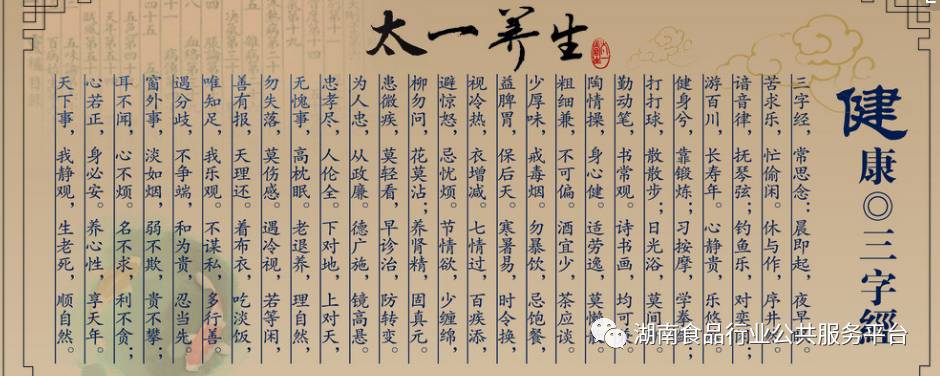 太一养生
健康◎三字經
三字经，常思念：晨即起，夜早
苦求乐，忙偷闲。休与作，序井
谙音律，抚琴弦；钓鱼乐，对弈
游百川，长寿年。心静贵，乐悠
健身兮，靠锻炼；习按摩，学拳
打打球，散散步；日光浴，莫间
勤动笔，书常观。诗书画，均可
陶情操，身心健。适劳逸，莫懒
粗细兼，不可偏。酒宜少，茶应谈。
少厚味，戒毒烟。勿暴饮，忌饱餐。
益脾胃，保后天。寒暑易，时令换，
视冷热，衣增减。七情过，百疾添，
避惊怒，忌忧烦。节情欲，少缠绵，
柳勿问，花莫沾；养肾精，固真元。
患微疾，莫轻看，早诊治，防转变。
为人忠，从政廉。德广施，镜高悬。
忠孝尽，人伦全。下对地，上对天
无愧事，高枕眠。老退养，理自然，
勿失落，莫伤感。遇冷视，若等闲，
善有报，天理还。着布衣，吃淡饭，
唯知足，我乐观。不谋私，多行善。
遇分歧，不争端，和为贵，忍当先。
窗外事，淡如烟，弱不欺，贵不攀；
耳不闻，心不烦。名不求，利不贪；
心若正，身必安。养心性，享天年。
天下事，我静观，生老死，顺自然。
湖南食品行业公共服务平台